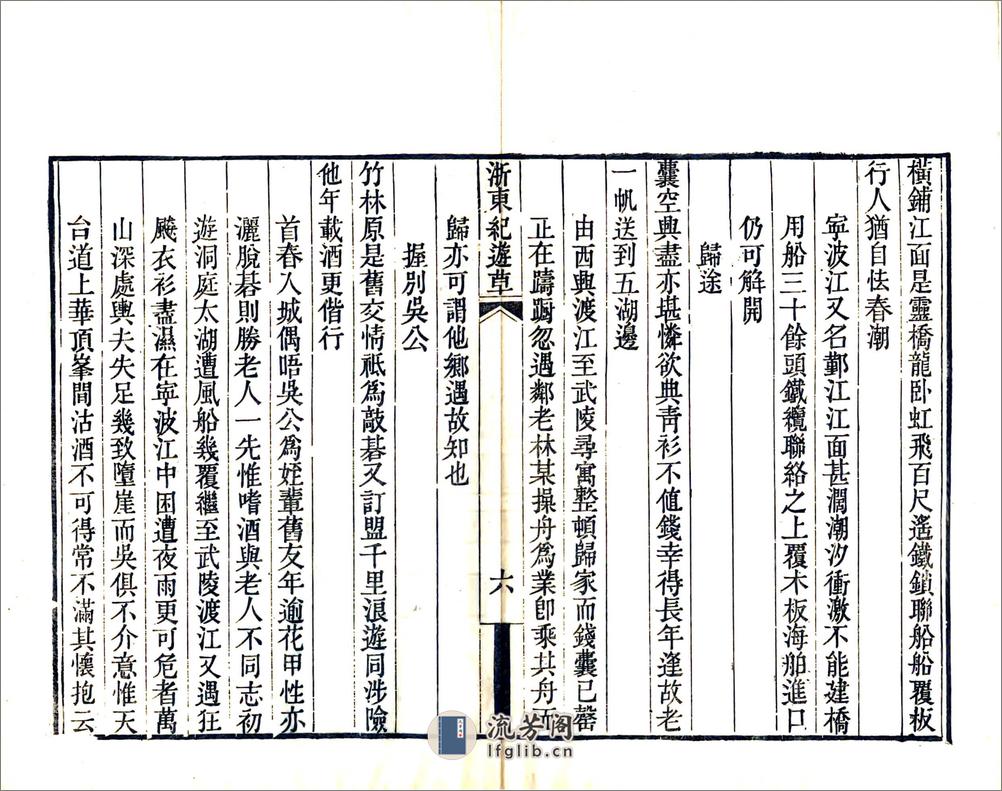 橫鋪江面是靈橋龍卧虹飛百尺遙鐵鎖聯船船覆板
行人猶自怯春潮
寧波江又名鄞江江面甚濶潮汐衝激不能建橋
用船三十餘頭鐵纜聯絡之上覆木板海舶進口
仍可解開
歸途
囊空興盡亦堪憐欲典靑衫不值錢幸得長年逢故老
一帆送到五湖邊
由西興渡江至武陵尋寓整頓歸家而錢囊已罄
正在躊蹰忽遇鄰老林某操舟爲業卽乘其舟而
浙東紀遊草
六
歸亦可謂他鄉遇故知也
握別吳公
竹林原是舊交情祇爲敲碁又訂盟千里浪遊同涉險
他年載酒更偕行
首春入城偶唔吳公爲姪輩舊友年逾花甲性亦
灑脫碁則勝老人一先惟嗜酒與老人不同志初
遊洞庭太湖遭風船幾覆繼至武陵渡江又遇狂
颷衣衫盡濕在寧波江中困遭夜雨更可危者萬
山深處輿夫失足幾致墮崖而吳俱不介意惟天
台道上華頂峯間沽酒不可得常不滿其懷抱云
流芳阁
lfglib.cn